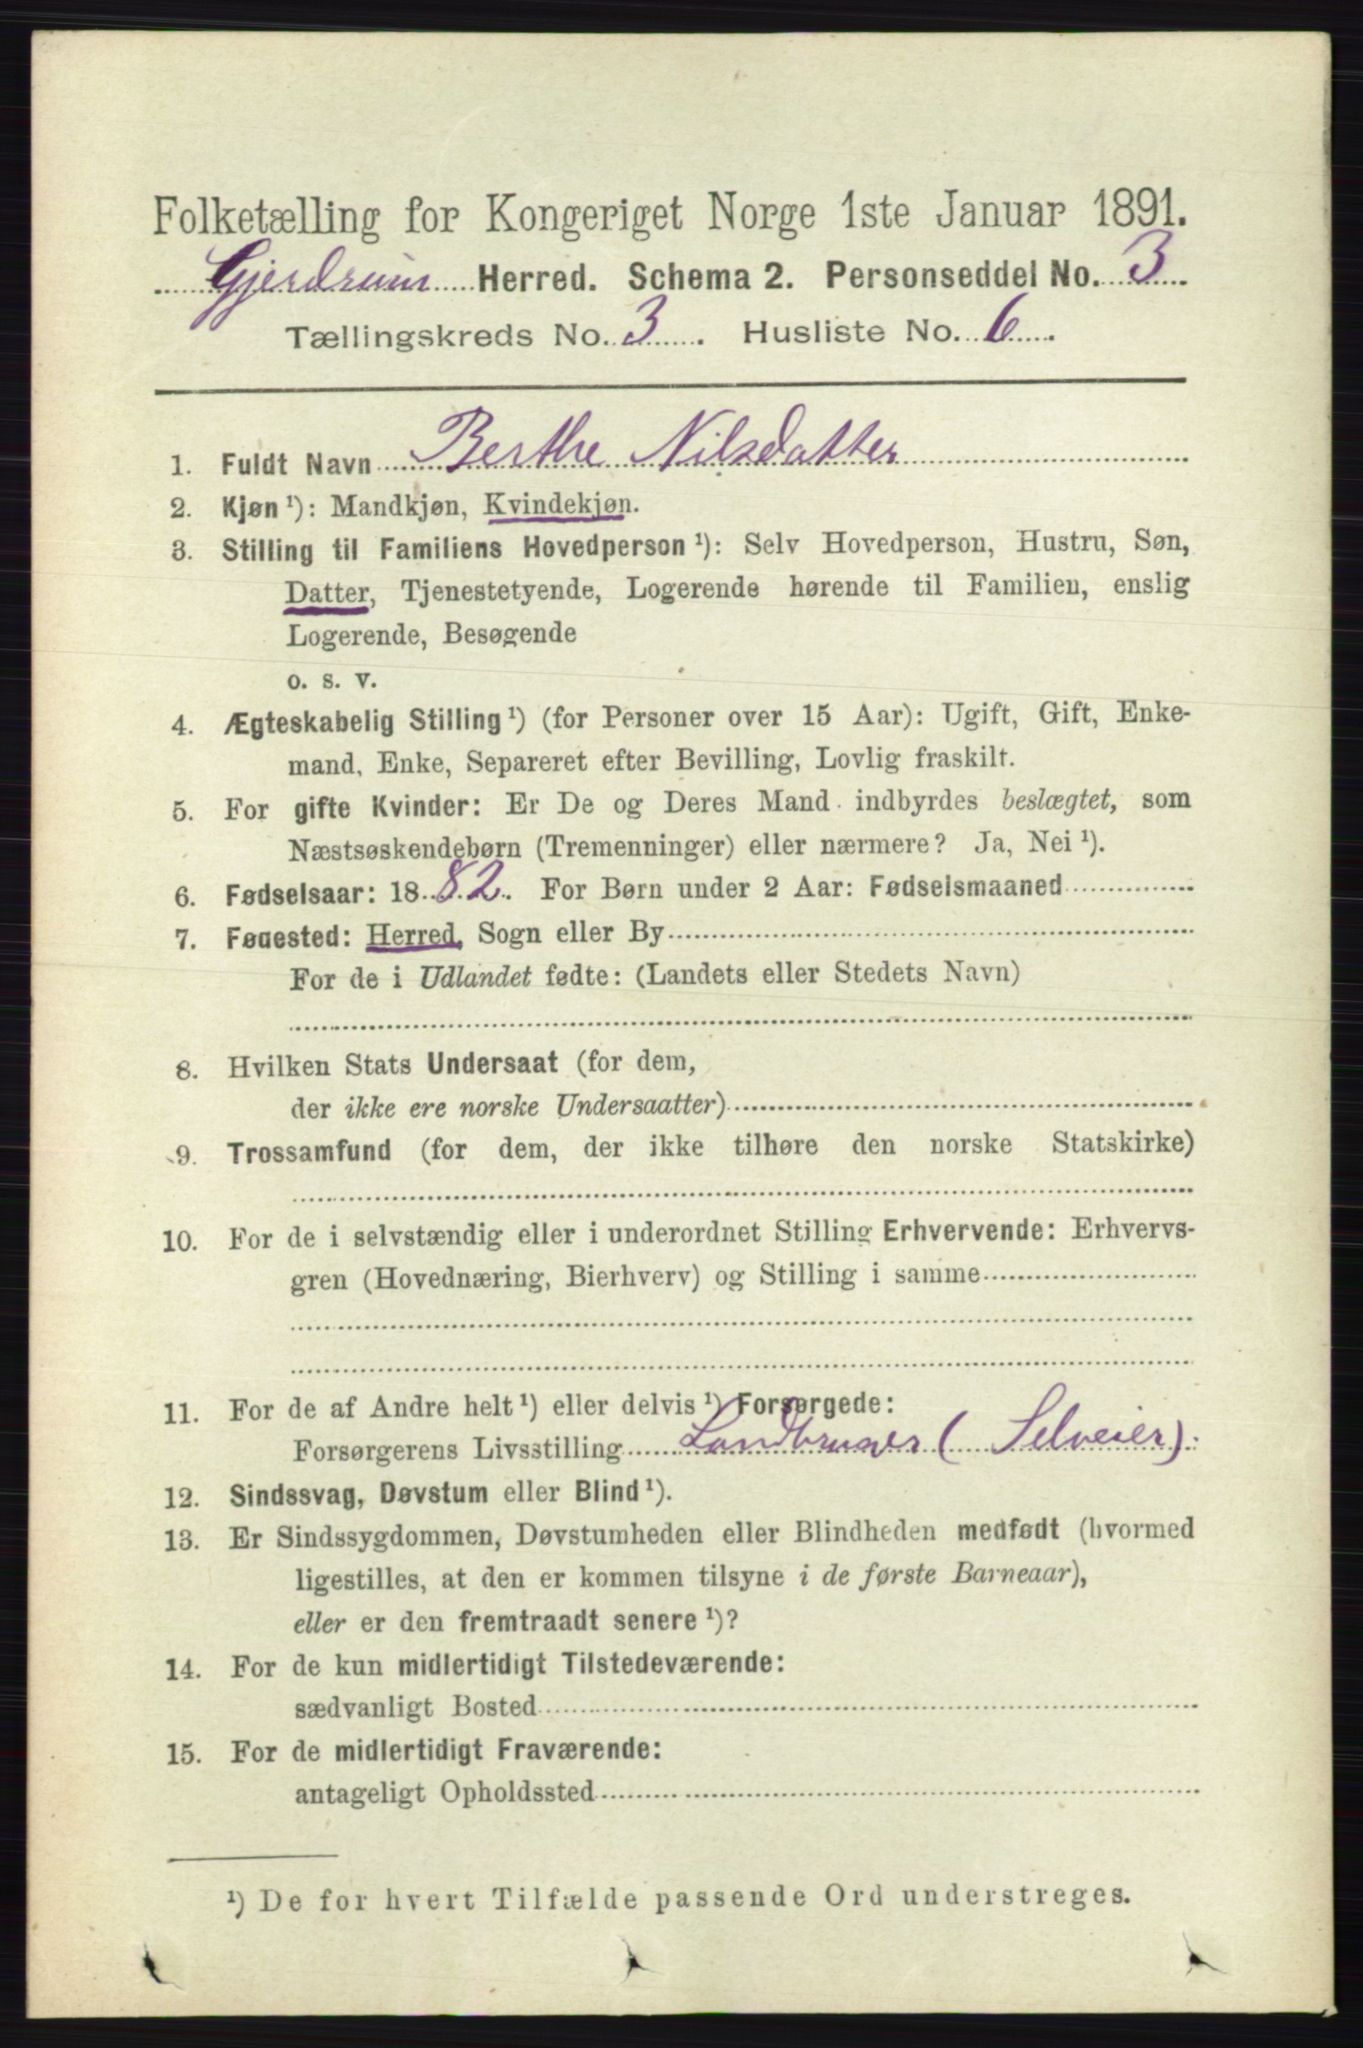 Folketælling for Kongeriget Norge 1ste Januar 1891.
Gjerdrum Herred. Schema 2. Personseddel No. 3
Tællingskreds No. 3. Husliste No. 6.
1. Fuldt Navn Berthe Nilsdatter
2. Kjøn ¹): Mandkjøn, Kvindekjøn.
3. Stilling til Familiens Hovedperson ¹): Selv Hovedperson, Hustru, Søn,
Datter, Tjenestetyende, Logerende hørende til Familien, enslig
Logerende, Besøgende
o. s. v.
4. Ægteskabelig Stilling ¹) (for Personer over 15 Aar): Ugift, Gift, Enke-
mand, Enke, Separeret efter Bevilling, Lovlig fraskilt.
5. For gifte Kvinder: Er De og Deres Mand indbyrdes beslægtet, som
Næstsøskendebørn (Tremenninger) eller nærmere? Ja, Nei ¹).
6. Fødselsaar: 1882. For Børn under 2 Aar: Fødselsmaaned
7. Fødested: Herred, Sogn eller By
For de i Udlandet fødte: (Landets eller Stedets Navn)
8. Hvilken Stats Undersaat (for dem,
der ikke ere norske Undersaatter)
9. Trossamfund (for dem, der ikke tilhøre den norske Statskirke)
10. For de i selvstændig eller i underordnet Stilling Erhvervende: Erhvervs-
gren (Hovednæring, Bierhverv) og Stilling i samme
11. For de af Andre helt ¹) eller delvis ¹) Forsørgede:
Forsørgerens Livsstilling Landbruger (Selveier).
12. Sindssvag, Døvstum eller Blind ¹).
13. Er Sindssygdommen, Døvstumheden eller Blindheden medfødt (hvormed
ligestilles, at den er kommen tilsyne i de første Barneaar),
eller er den fremtraadt senere ¹)?
14. For de kun midlertidigt Tilstedeværende:
sædvanligt Bosted
15. For de midlertidigt Fraværende:
antageligt Opholdssted
¹) De for hvert Tilfælde passende Ord understreges.